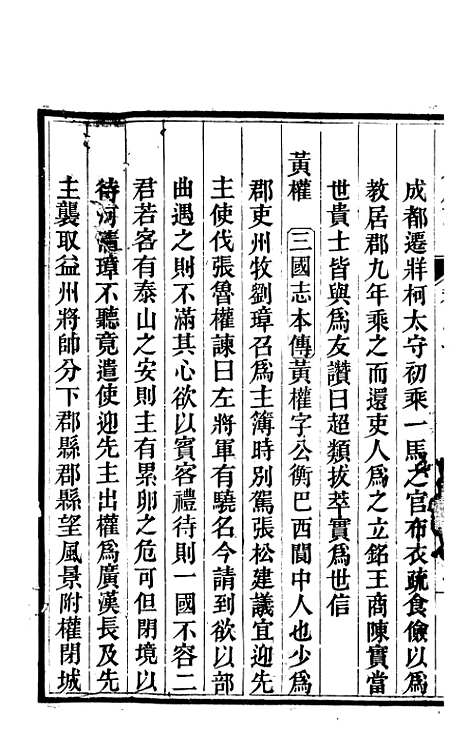 成都遷牂柯太守初乘一馬之官布衣疏食儉以爲
教居郡九年乘之而還吏人爲之立銘王商陳實當
世貴士皆與爲友讚曰超類拔萃實爲世信
黃權　三國志本傳黃權字公衡巴西閬中人也少爲
郡吏州牧劉璋召爲主簿時別駕張松建議宜迎先
主使伐張魯權諫曰左將軍有驍名今請到欲以部
曲遇之則不滿其心欲以賓客禮待則一國不容二
君若客有泰山之安則主有累卵之危可但閉境以
待河清璋不聽竟遣使迎先主出權爲廣漢長及先
主襲取益州將帥分下郡縣郡縣望風景附權閉城